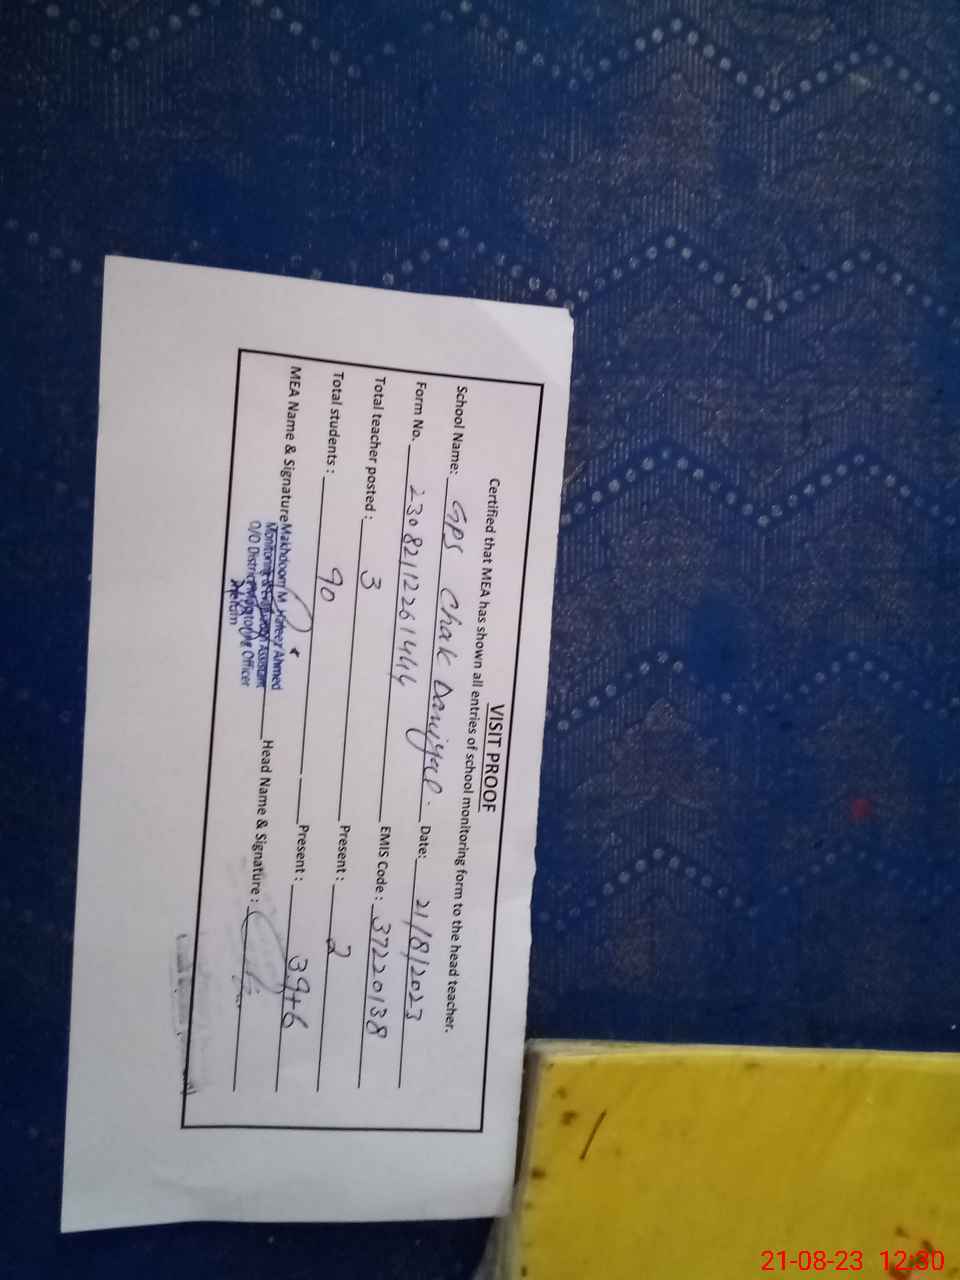 VISIT PROOF
Certified that MEA has shown all entries of school monitoring form to the head teacher.
School Name: GPS Chak Daniyal. Date: 21/8/2023
Form No. 230821122261444 EMIS Code: 37220138
Total teacher posted: 3 Present: 2
Total students: 90 Present: 39+6
MEA Name & Signature Makhdoom M. Ahmed Head Name & Signature:
Monitoring & Assistant
O/O District Monitoring Officer
Jhelum
21-08-23 12:30